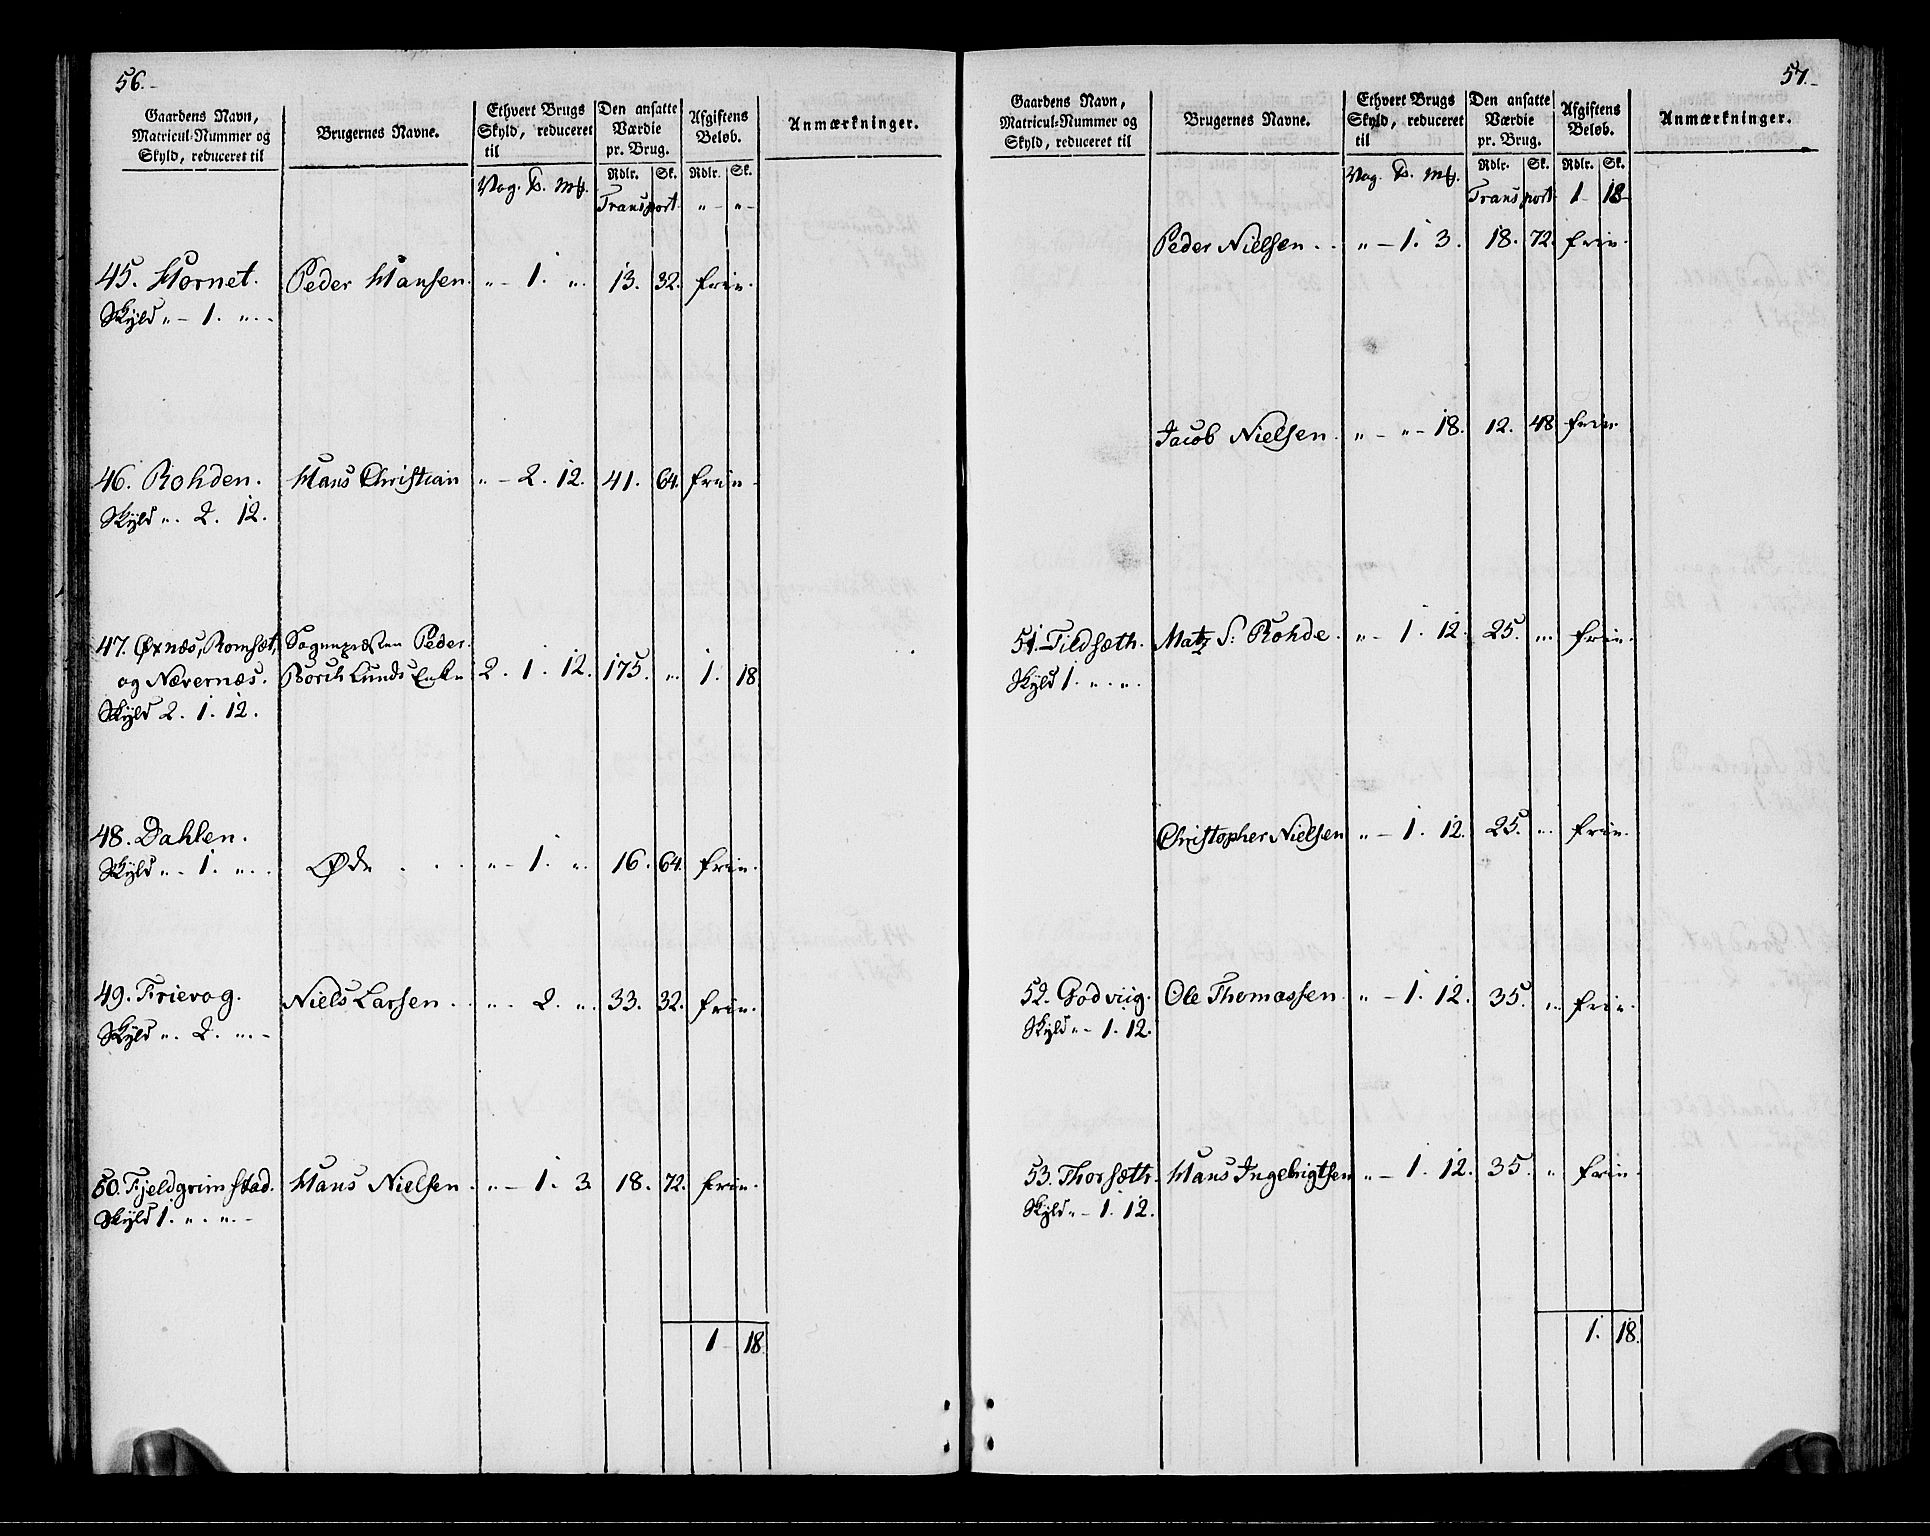 56.
Gaardens Navn, Matricul-Nummer og Skyld, reduceret til | Brugernes Navne. | Ethvert Brugs Skyld, reduceret til | Den ansatte Værdie pr. Brug. | Afgiftens Beløb. | Anmærkninger.
Rdlr. Sk. Rdlr. Sk.
Vog. ℔. mk.
Transport „ - „ -
45. Hornet. Peder Hansen. „ - 1. „. 13. 32. frie.
Skyld „ - 1. „. -
46. Rohden. Hans Christian „ - 2. 12. 41. 64. frie.
Skyld „. 2. 12.
47. Øxnæs, Romsæt, Sognepræsten Peder
og Nævernæs. Borch Lunds Enke 2. 1. 12. 175. „. 1. 18
Skyld 2. 1. 12.
48. Dahlen.
Skyld „ - 1. „. . Øde . . . „ - 1. „. 16. 64. frie.
49. Frievog. Niels Larsen . „ . 2. „. 33. 32. frie.
Skyld „. 2. „. -
50. Fjeldgrimstad. Hans Nielsen . „ - 1. 3. 18. 72. frie.
Skyld 1. „. „. -
1 - 18.
57.
Gaardens Navn, Matricul-Nummer og Skyld, reduceret til | Brugernes Navne. | Ethvert Brugs Skyld, reduceret til | Den ansatte Værdie pr. Brug. | Afgiftens Beløb. | Anmærkninger.
Rdlr. Sk. Rdlr. Sk.
Vog. ℔. mk.
Transport 1 - 18
Peder Nielsen . . „ - 1. 3. 18. 72. frie.
Jacob Nielsen . „ - „ - 18. 12. 48 frie.
51. Tildsæth. Matz S: Rohde. „ - 1. 12. 25. „. frie.
Skyld 1. „. „.
Christopher Nielsen „ - 1. 12. 25. „. frie.
52. Godviig. Ole Thomassen. „ - 1. 12. 35. „. frie.
Skyld „ - 1. 12.
53. Thorsæth. Hans Ingebrigtsen „ - 1. 12. 35. „ frie.
Skyld „ - 1. 12.
1. 18.